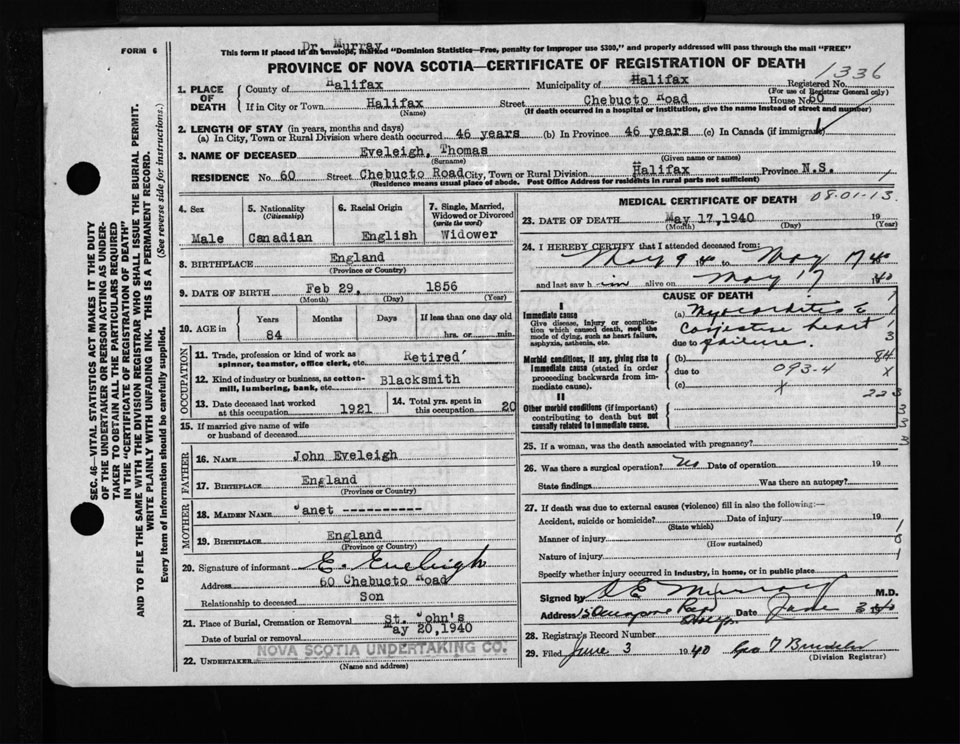 FORM 6
Dr. Murray
This form if placed in an envelope, marked "Dominion Statistics—Free, penalty for improper use $300," and properly addressed will pass through the mail "FREE"
PROVINCE OF NOVA SCOTIA—CERTIFICATE OF REGISTRATION OF DEATH
1336
1. PLACE OF DEATH
County of Halifax Municipality of Halifax Registered No.
(For use of Registrar General only)
If in City or Town Halifax Street Chebucto Road House No. 60
(Name) (If death occurred in a hospital or institution, give the name instead of street and number)
2. LENGTH OF STAY (in years, months and days)
(a) In City, Town or Rural Division where death occurred 46 years (b) In Province 46 years (c) In Canada (if immigrant)
3. NAME OF DECEASED Eveleigh, Thomas
(Surname) (Given name or names)
RESIDENCE No. 60 Street Chebucto Road City, Town or Rural Division Halifax Province N.S.
(Residence means usual place of abode. Post Office Address for residents in rural parts not sufficient)
4. Sex Male
5. Nationality (Citizenship) Canadian
6. Racial Origin English
7. Single, Married, Widowed or Divorced (write the word) Widower
8. BIRTHPLACE England
(Province or Country)
9. DATE OF BIRTH Feb 29, 1856
(Month) (Day) (Year)
10. AGE in Years Months Days If less than one day
84 hrs. or min.
OCCUPATION
11. Trade, profession or kind of work as spinner, teamster, office clerk, etc. Retired
12. Kind of industry or business, as cotton-mill, lumbering, bank, etc. Blacksmith
13. Date deceased last worked at this occupation 1921
14. Total yrs. spent in this occupation 20
15. If married give name of wife or husband of deceased
FATHER
16. NAME John Eveleigh
17. BIRTHPLACE England
(Province or Country)
MOTHER
18. MAIDEN NAME Janet -----------
19. BIRTHPLACE England
(Province or Country)
20. Signature of informant E. Eveleigh
Address 60 Chebucto Road
Relationship to deceased Son
21. Place of Burial, Cremation or Removal St. John's
Date of burial or removal May 20, 1940
22. UNDERTAKER NOVA SCOTIA UNDERTAKING CO.
(Name and address)
MEDICAL CERTIFICATE OF DEATH 08-01-13
23. DATE OF DEATH May 17, 1940 19
(Month) (Day) (Year)
24. I HEREBY CERTIFY that I attended deceased from:
May 9 40 to May 17 40
and last saw him alive on May 17 40
CAUSE OF DEATH
I
Immediate cause
Give disease, injury or complication which caused death, not the mode of dying, such as heart failure, asphyxia, asthenia, etc.
(a) Myocarditis &
Congestive heart
due to failure.
Morbid conditions, if any, giving rise to immediate cause (stated in order proceeding backwards from immediate cause).
(b) 84
due to 093-4 X
(c) X 223
II
Other morbid conditions (if important) contributing to death but not causally related to immediate cause.
25. If a woman, was the death associated with pregnancy?
26. Was there a surgical operation? No Date of operation 19
State findings Was there an autopsy?
27. If death was due to external causes (violence) fill in also the following:—
Accident, suicide or homicide? Date of injury 19
(State which)
Manner of injury
(How sustained)
Nature of injury
Specify whether injury occurred in industry, in home, or in public place
Signed by S E Murray M.D.
Address Date June 3 40
28. Registrar's Record Number
29. Filed June 3 1940
(Division Registrar)
SEC. 46—VITAL STATISTICS ACT MAKES IT THE DUTY
OF THE UNDERTAKER OR PERSON ACTING AS UNDER-
TAKER TO OBTAIN ALL THE PARTICULARS REQUIRED
IN THE "CERTIFICATE OF REGISTRATION OF DEATH"
AND TO FILE THE SAME WITH THE DIVISION REGISTRAR WHO SHALL ISSUE THE BURIAL PERMIT.
WRITE PLAINLY WITH UNFADING INK. THIS IS A PERMANENT RECORD.
Every item of information should be carefully supplied. (See reverse side for instructions.)